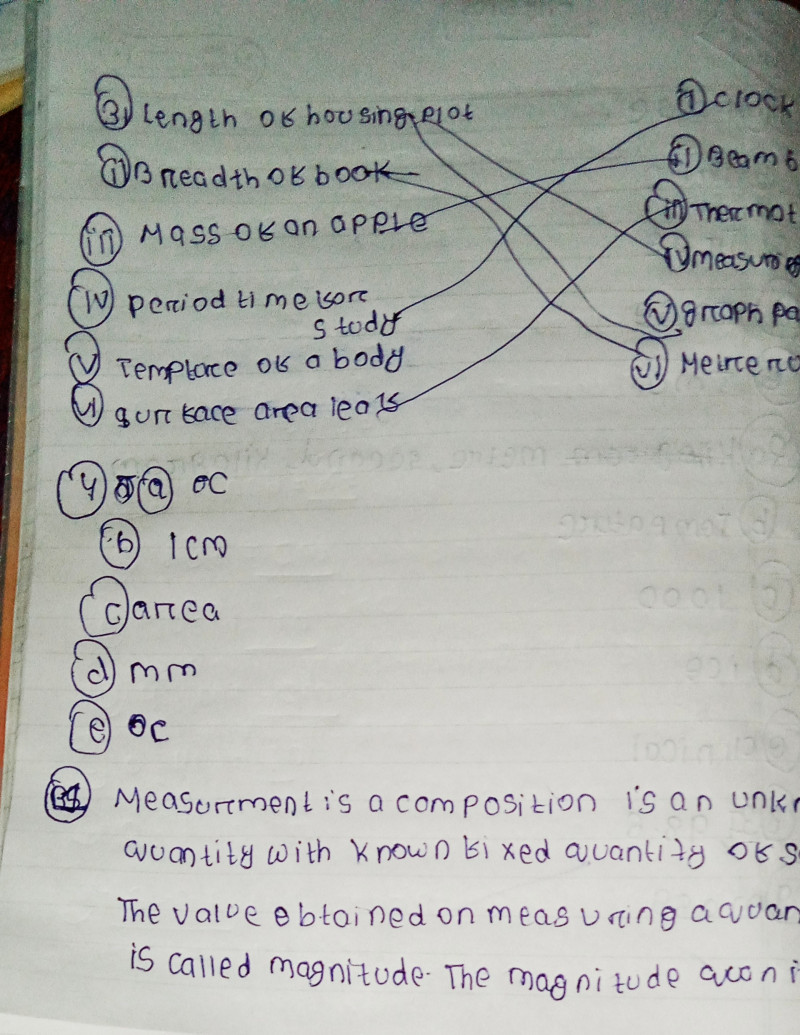 3) Length of housing plot
i) Clock
ii) Breadth of book
ii) Beam b
iii) Mass of an apple
iii) Thermot
iv) measuri
iv) Period time for
study
v) graph pa
v) Templare of a body
vi) Meitre ro
vi) surface area leafs
4) a) °C
b) 1 cm
c) area
d) mm
e) °C
Measurment is a composition is an unkn
quantity with known fixed quantity of s
The value obtained on measuring a quan
is called magnitude. The magnitude